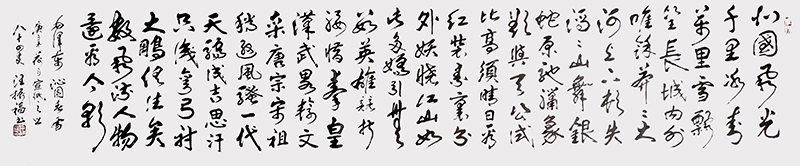 北國風光
千里冰封
萬里雪飄
望長城內外
唯餘莽莽大
河上下頓失
滔滔山舞銀
蛇原馳蠟象
欲與天公試
比高須晴日看
紅裝素裹分
外妖嬈江山如
此多嬌引無
數英雄競折
腰惜秦皇
漢武略輸文
采唐宗宋祖
稍遜風騷一代
天驕成吉思汗
只識彎弓射
大鵰俱往矣
數風流人物
還看今朝
毛澤東 沁園春雪
八十四叟 汪振福書